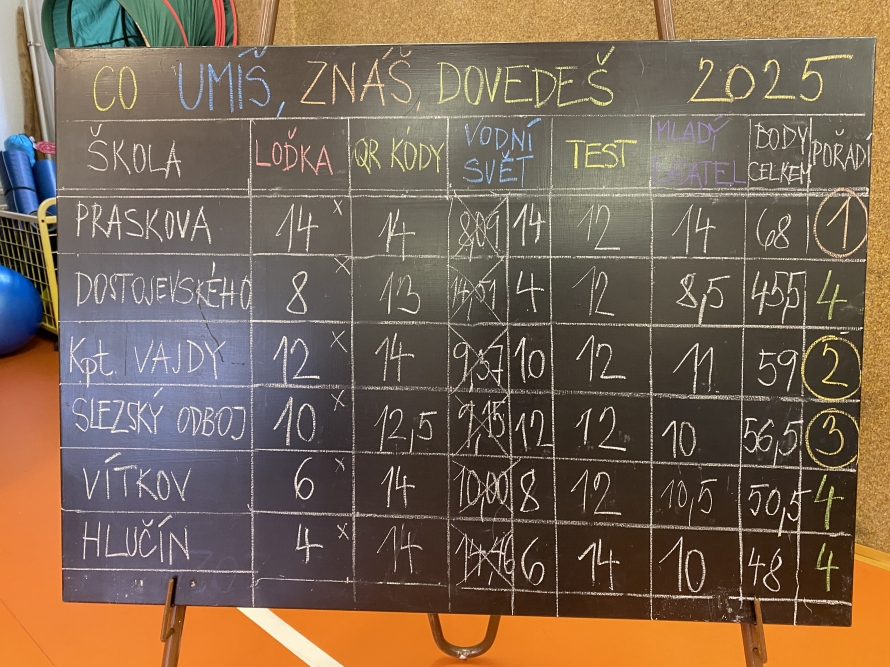 CO UMÍŠ, ZNÁŠ, DOVEDEŠ 2025
ŠKOLA LOĎKA QR KÓDY VODNÍ SVĚT TEST MLADÝ BODY CELKEM POŘADÍ
PRASKOVA 14 x 14 8,09 14 12 14 68 1
DOSTOJEVSKÉHO 8 x 13 14,51 4 12 8,5 45,5 4
Kpt. VAJDY 12 x 14 9,57 10 12 11 59 2
SLEZSKÝ ODBOJ 10 x 12,5 9,15 12 12 10 56,5 3
VÍTKOV 6 x 14 10,00 8 12 10,5 50,5 4
HLUČÍN 4 x 14 14,46 6 14 10 48 4